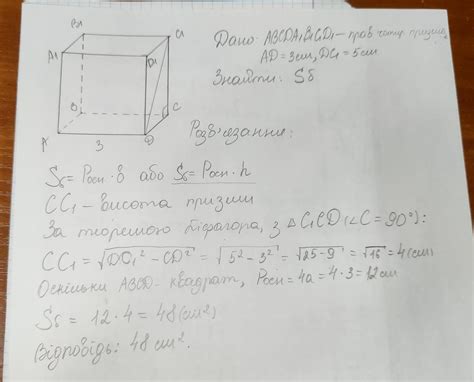 B1
C1
A1
D1
B
C
A
3
D
Дано: ABCDA1B1C1D1 – прав. чотир. призма,
AD = 3см, DC1 = 5см
Знайти: Sб
Розв'язання:
Sб = Pосн · b або Sб = Pосн · h
CC1 – висота призми
За теоремою Піфагора, з △C1CD (∠C = 90°):
CC1 = √DC1² – CD² = √5² – 3² = √25 – 9 = √16 = 4 (см)
Оскільки ABCD – квадрат, Pосн = 4a = 4 · 3 = 12 см
Sб = 12 · 4 = 48 (см²)
Відповідь: 48 см².